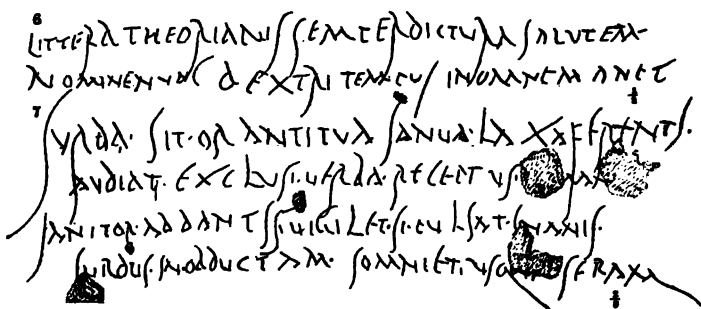 6
LITTERA THEORIANIS SEMPER DICTURA SALUTEM
NOMINE NUNC DEXTRI TEMPUS IN OMNE MANET
7
SURDA·SIT·ORANTI TUA IANUA·LAXA FERENTI·
AUDIAT·EXCLUSI·UERBA·RECEPTUS·AMANS
IANITOR·AD DANTIS UIGILET·SI PULSAT·INANIS·
SURDUS·IN OBDUCTAM·SOMNIET USQUE SERAM